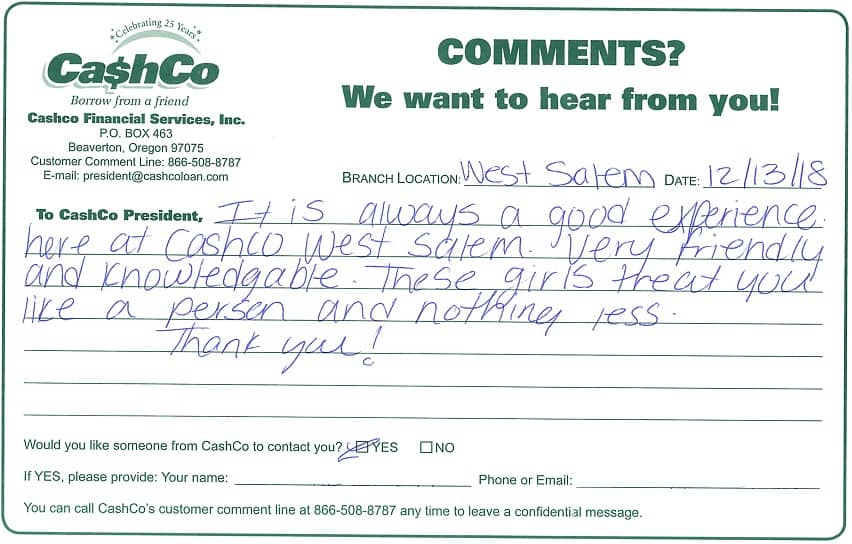 Celebrating 25 Years
Ca$hCo
Borrow from a friend
Cashco Financial Services, Inc.
P.O. BOX 463
Beaverton, Oregon 97075
Customer Comment Line: 866-508-8787
E-mail: president@cashcoloan.com
COMMENTS?
We want to hear from you!
BRANCH LOCATION: West Salem DATE: 12/13/18
To CashCo President, It is always a good experience
here at Cashco West Salem. Very friendly
and knowledgable. These girls treat you
like a person and nothing less.
Thank you!
Would you like someone from CashCo to contact you? YES NO
If YES, please provide: Your name: Phone or Email:
You can call CashCo's customer comment line at 866-508-8787 any time to leave a confidential message.